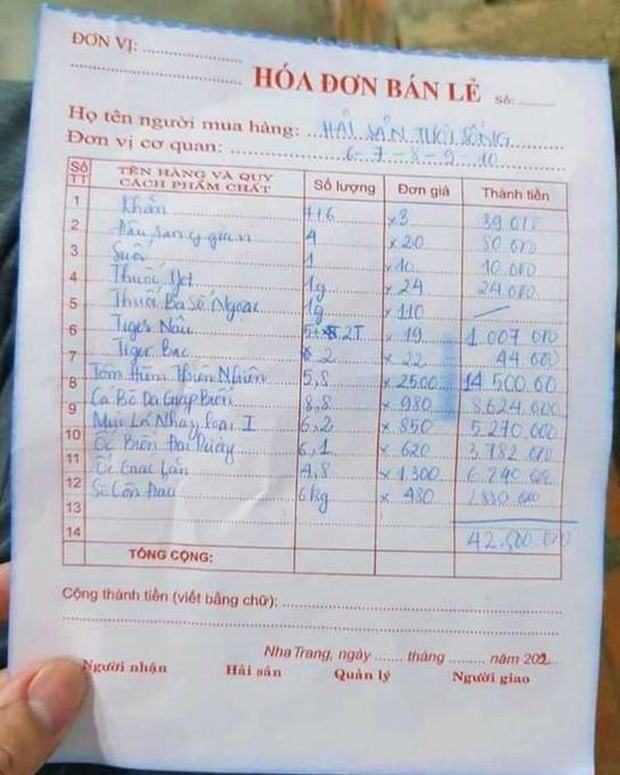 ĐƠN VỊ: ....................
HÓA ĐƠN BÁN LẺ Số: ........
Họ tên người mua hàng: HẢI SẢN TƯƠI SỐNG
Đơn vị cơ quan: 6-7-8-9-10
Số TT TÊN HÀNG VÀ QUY CÁCH PHẨM CHẤT Số lượng Đơn giá Thành tiền
1 Khăn x3 39 000
2 4 x20 80 000
3 Suối 1 x10 10.000
4 Thuốc Jet 1g x24 24.000
5 Thuốc Ba Số Ngoại 1g x110
6 Tiger Nâu 2T x 19 1 007 000
7 Tiger Bạc 2 x 22 44 000
8 Tôm Hùm Thiên Nhiên 5,8 x 2500 14 500.00
9 Cá Bò Da Giáp Biển 8,8 x 980 8.624.000
10 Mực Lá Nháy loại I 6,2 x 850 5.270.000
11 Ốc Biển Đại Dương 6,1 x 620 3,782 000
12 Ốc Gai 4,8 x 1.300 6.240 000
13 Sò Côn Đảo 6kg x 480 2880 000
14 42.500.000
TỔNG CỘNG:
Cộng thành tiền (viết bằng chữ): ....................
Nha Trang, ngày ....... tháng ......... năm 202...
Người nhận Hải sản Quản lý Người giao